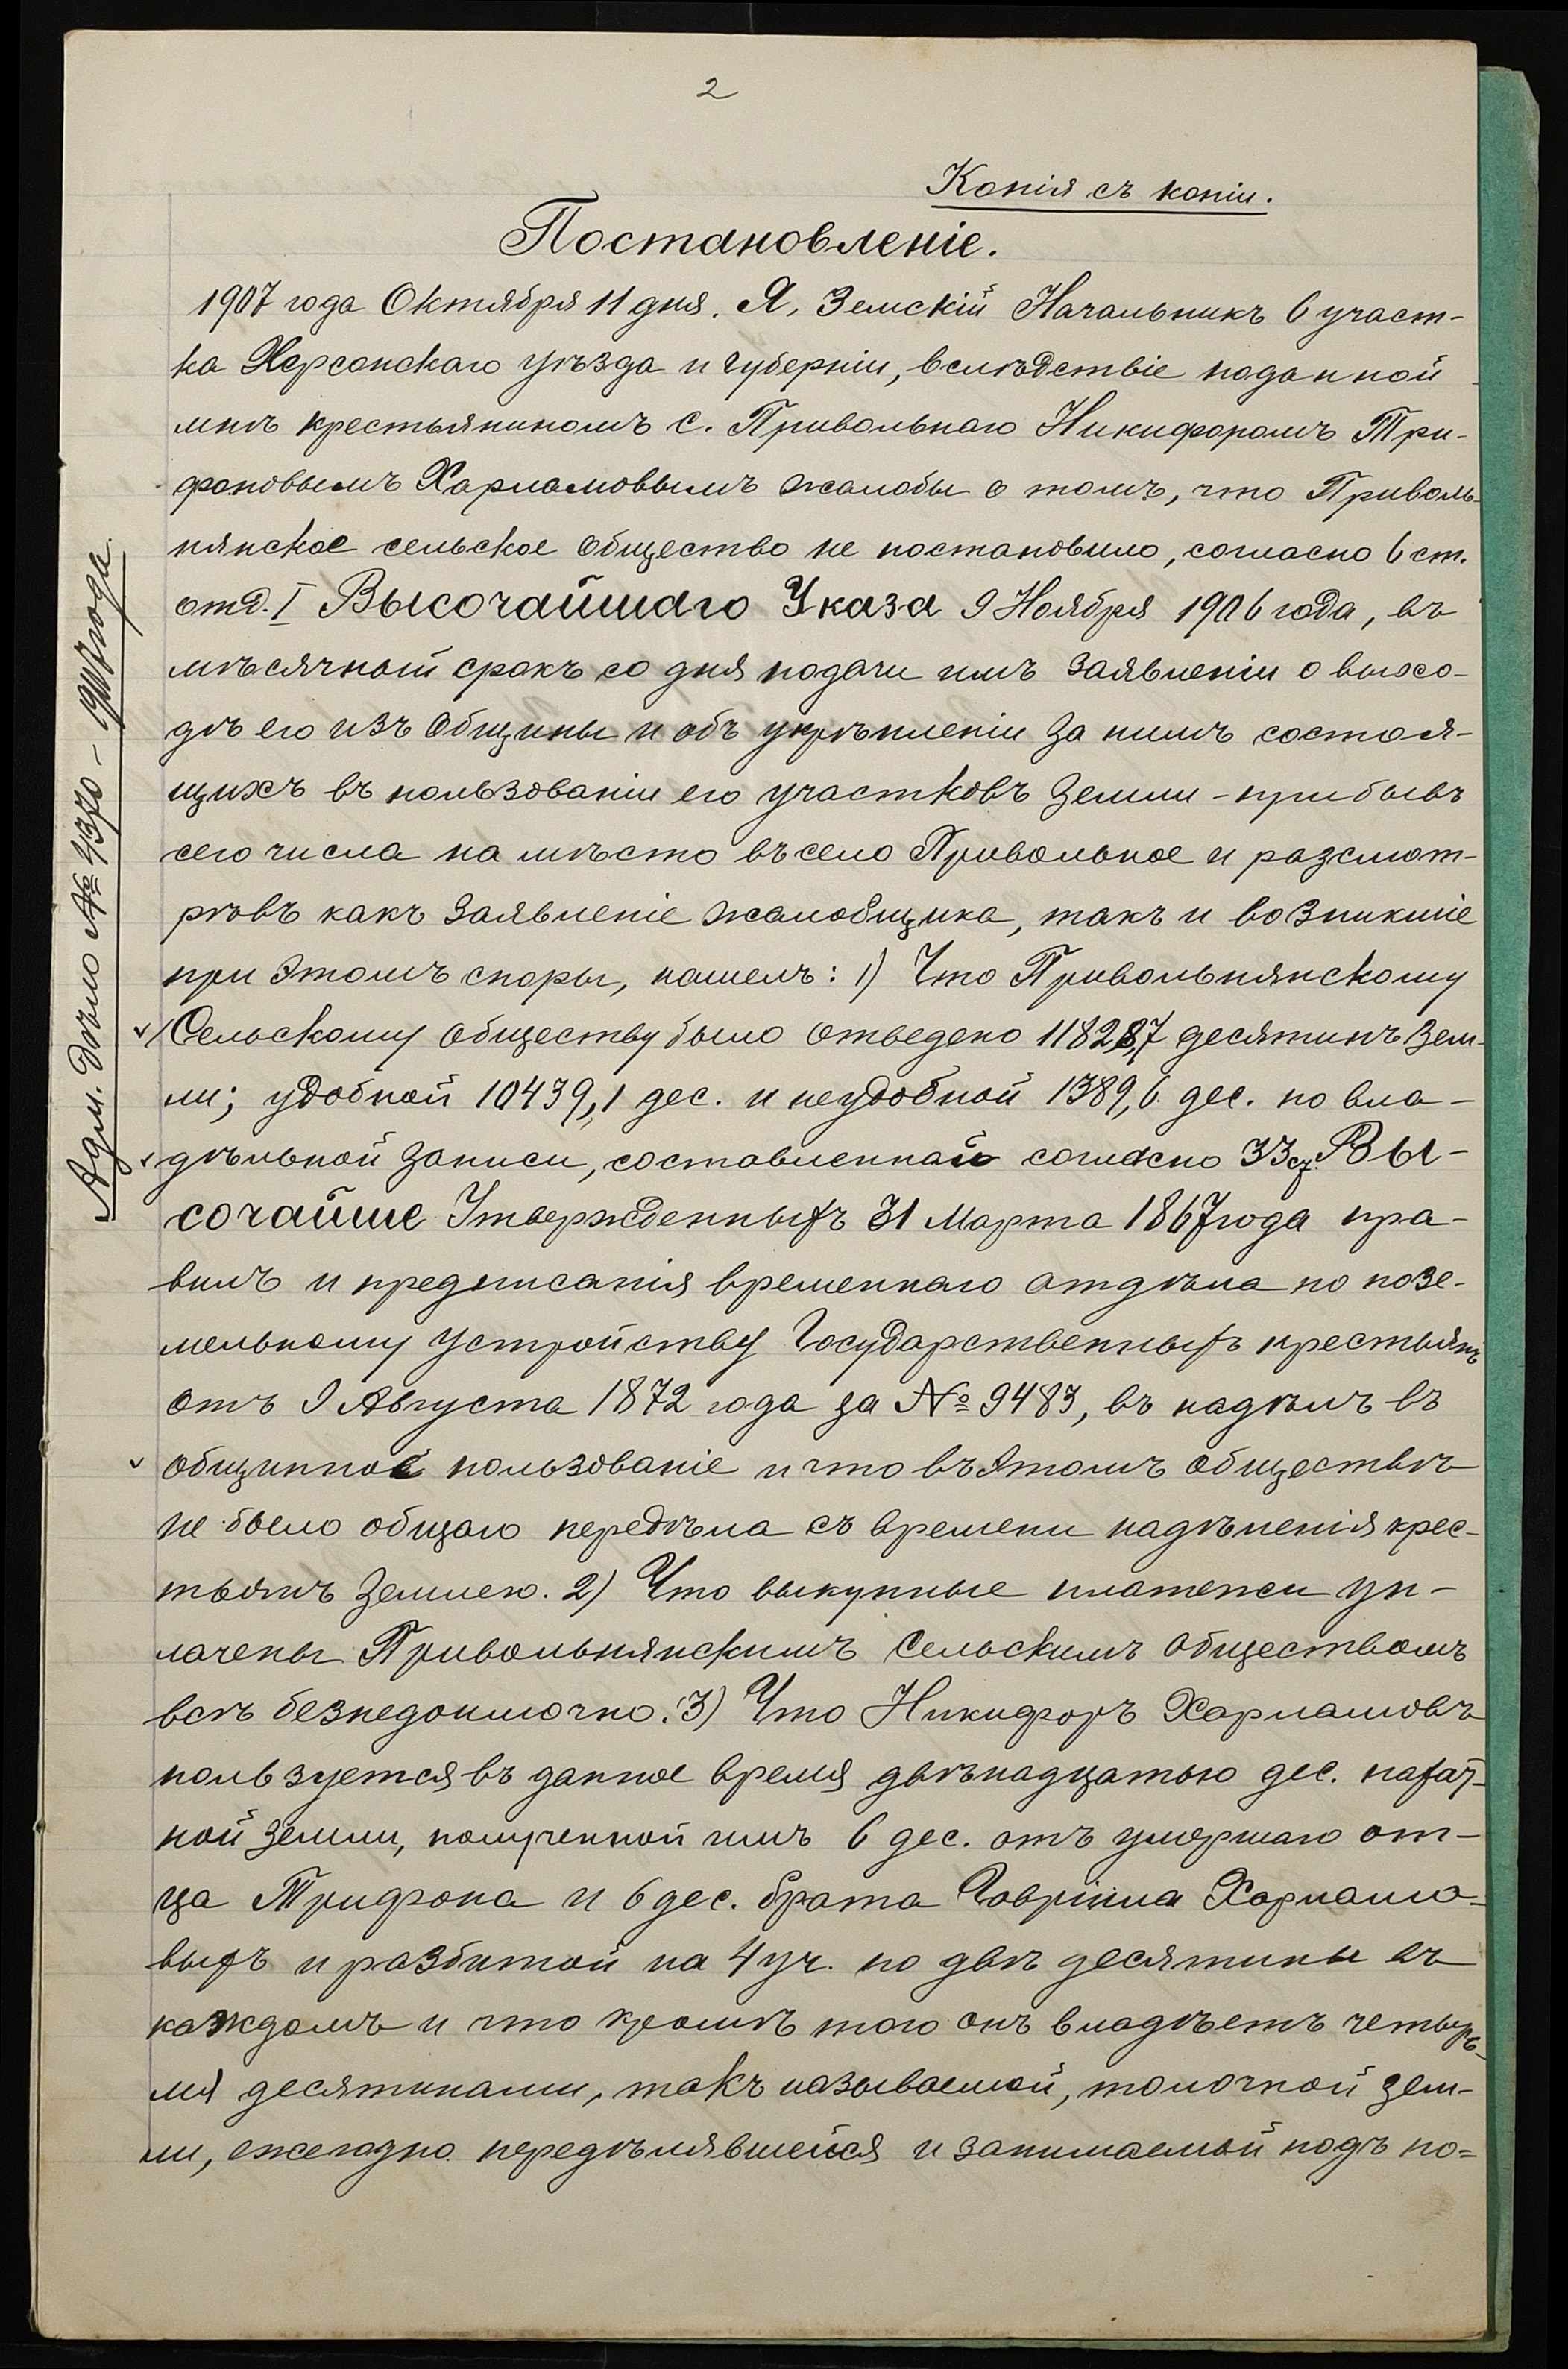 2
Копія съ копіи.
Постановленіе.
1907 года Октября 11 дня. Я, Земскій Начальникъ 6 участ-
ка Херсонскаго уѣзда и губерніи, вслѣдствіе поданной
мнѣ крестьяниномъ с. Привольнаго Никифоромъ Три-
фоновымъ Харламовымъ жалобы о томъ, что Приволь-
нянское сельское общество не постановило, согласно 6 ст.
отд. I Высочайшаго Указа 9 Ноября 1906 года, въ
мѣсячный срокъ со дня подачи имъ заявленіи о выхо-
дѣ его изъ общины и объ укрѣпленіи за нимъ состоя-
щихъ въ пользованіи его участковъ земли - прибывъ
сего числа на мѣсто въ село Привольное и разсмот-
рѣвъ какъ заявленіе жалобщика, такъ и возникшіе
при этомъ споры, нашелъ: 1) Что Привольнянскому
Сельскому обществу было отведено 11828,7 десятинъ зем-
ли; удобной 10439,1 дес. и неудобной 1389,6 дес. по вла-
дѣльной записи, составленной согласно 33 ст. Вы-
сочайше Утвержденныхъ 31 Марта 1867 года пра-
вилъ и предписанія временнаго отдѣла по позе-
мельному устройству Государственныхъ крестьянъ
отъ 9 Августа 1872 года за № 9483, въ надѣлъ въ
общинное пользованіе и что въ этомъ обществѣ
не было общаго передѣла съ времени надѣленія крес-
тьянъ землею. 2) Что выкупные платежи уп-
лачены Привольнянскимъ Сельскимъ обществомъ
всѣ безнедоимочно. 3) Что Никифоръ Харламовъ
пользуется въ данное время двѣнадцатью дес. пахат-
ной земли, полученной имъ 6 дес. отъ умершаго от-
ца Трифона и 6 дес. брата Гавріила Харламо-
выхъ и разбитой на 4 уч. по двѣ десятины въ
каждомъ и что кромѣ того онъ владѣетъ четырь-
мя десятинами, такъ называемой, толочной зем-
ли, ежегодно передѣлявшейся и занимаемой подъ по=
Адм. Дѣло № 4370 - 1907 года.